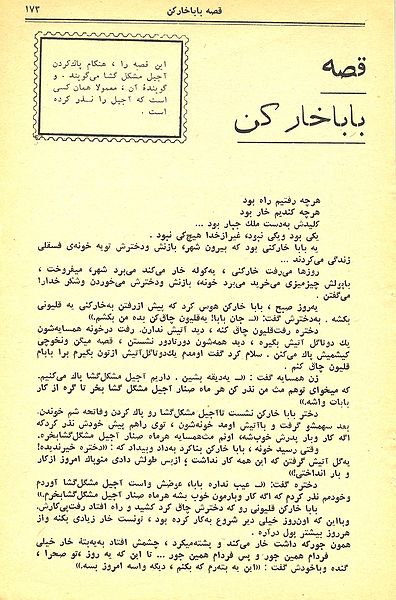 قصه باباخارکن
۱۷۳
این قصه را ، هنگام پاك‌کردن
آجیل مشکل گشا می‌گویند . و
گویندهٔ آن ، معمولا همان کسی
است که آجیل را نذر کرده
است .
قصه
باباخارکن
هرچه رفتیم راه بود
هرچه کندیم خار بود
کلیدش به‌دست ملك جبار بود ...
یکی بود ویکی نبود، غیرازخدا هیچ‌کی نبود .
یه بابا خارکنی بود که بیرون شهر، بازنش ودخترش تویه خونه‌ی فسقلی
زندگی می‌کردند ...
روزها می‌رفت خارکنی ، یه‌کوله خار می‌کند می‌برد شهر، میفروخت ،
باپولش چیزمیزی می‌خرید می‌برد خونه، بازنش ودخترش می‌خوردن وشکر خدارا
می‌گفتن .
یه‌روز صبح ، بابا خارکن هوس کرد که پیش ازرفتن به‌خارکنی یه قلیونی
بکشه . به‌دخترش گفت: «ـ جان بابا! یه‌قلیون چاق‌کن بده من بکشم.»
دختره رفت‌قلیون چاق کنه ، دید آتیش ندارن. رفت درخونه همسایه‌شون
یك دوتاگل آتیش بگیره ، دید همه‌شون دورتادور نشستن ، قصه میگن ونخوچی
کیشمیش پاك می‌کنن . سلام کرد گفت اومدم یك‌دوتاگل‌آتیش ازتون بگیرم برا بابام
قلیون چاق کنم .
زن همسایه گفت : «ـ یه‌دیقه بشین . داریم آجیل مشکل‌گشا پاك می‌کنیم.
که میخوای توهم مث من نذر کن هر ماه صنار آجیل مشکل گشا بخر تا گره از کار
بابات واشه.»
دختر بابا خارکن نشست تاآجیل مشکل‌گشا رو پاك کردن وفاتحه شم خوندن.
بعد سهمشو گرفت و باآتیش اومد خونه‌شون ، توی راهم پیش خودش نذر کردکه
اگه کار وبار پدرش خوب‌شه، اونم مث‌همسایه هرماه صنار آجیل مشکل‌گشابخره.
وقتی رسید خونه ، بابا خارکن بناکرد به‌داد وبیداد که : «دختره خیرندیده!
یه‌گل آتیش گرفتن که این همه کار نداشت ؛ ازبس طولش دادی منویاك امروز ازکار
و بار انداختی!»
دختره گفت: «ـ عیب نداره بابا، عوضش واست آجیل مشکل‌گشاآوردم
وخودمم نذر کردم که اگه کار وبارمون خوب بشه هرماه صنار آجیل مشکل‌گشابخرم.»
بابا خارکن قلیونی رو که دخترش چاق کرد کشید و راه افتاد رفت‌پی‌کارش.
وبااین که اون‌روز خیلی دیر شروع به‌کار کرده بود ، تونست خار زیادی بکنه واز
هرروز بیشتر پول درآره .
همون جورکه داشت خار می‌کند و پشته‌میکرد ، چشمش افتاد به‌یه‌پتهٔ خار خیلی
گنده وباخودش گفت : «این یه پته‌رم که بکنم ، دیگه واسه امروز بسه.»
فردام همین جور و پس فردام همین جور ... تا این که یه روز ،تو صحرا ،